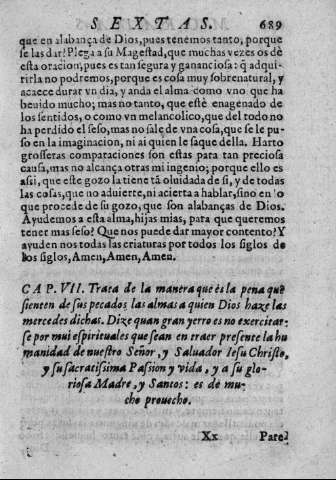 SEXTAS. 689
que en alabança de Dios, pues tenemos tanto, porque
se las dar? Plega a su Magestad, que muchas vezes os dè
esta oracion, pues es tan segura y gananciosa: q̃ adqui-
rirla no podremos, porque es cosa muy sobrenatural, y
acaece durar vn dia, y anda el alma como vno que ha
beuido mucho; mas no tanto, que estè enagenado de
los sentidos, o como vn melancolico, que del todo no
ha perdido el seso, mas no sale de vna cosa, que se le pu-
so en la imaginacion, ni ai quien le saque della. Harto
grosseras comparaciones son estas para tan preciosa
causa, mas no alcança otras mi ingenio; porque ello es
assi, que este gozo la tiene tã oluidada de si, y de todas
las cosas, que no aduierte, ni acierta a hablar, sino en lo
que procede de su gozo, que son alabanças de Dios.
Ayudemos a esta alma, hijas mias, para que queremos
tener mas seso? Que nos puede dar mayor contento? Y
ayuden nos todas las criaturas por todos los siglos de
los siglos, Amen, Amen, Amen.
CAP. VII. Trata de la manera que es la pena que
sienten de sus pecados las almas a quien Dios haze las
mercedes dichas. Dize quan gran yerro es no exercitar-
se por mui espirituales que sean en traer presente la hu
manidad de nuestro Señor, y Saluador Iesu Christo,
y su sacratissima Passion y vida, y a su glo-
riosa Madre, y Santos: es de mu-
cho prouecho.
Xx Pare-